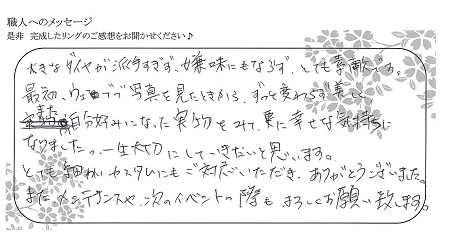 職人へのメッセージ
是非 完成したリングのご感想をお聞かせください♪
大きなダイヤが派手すぎず、嫌味にもならず、とても素敵です。
最初、ウェブで写真を見たときから、ずっと変わらず美しく、
自分好みになった実物をみて、更に幸せな気持ちに
なりました。一生大切にしていきたいと思います。
とても細かいカスタムにもご対応いただき、ありがとうございました。
また、メンテナンスや、次のイベントの際もよろしくお願い致します。